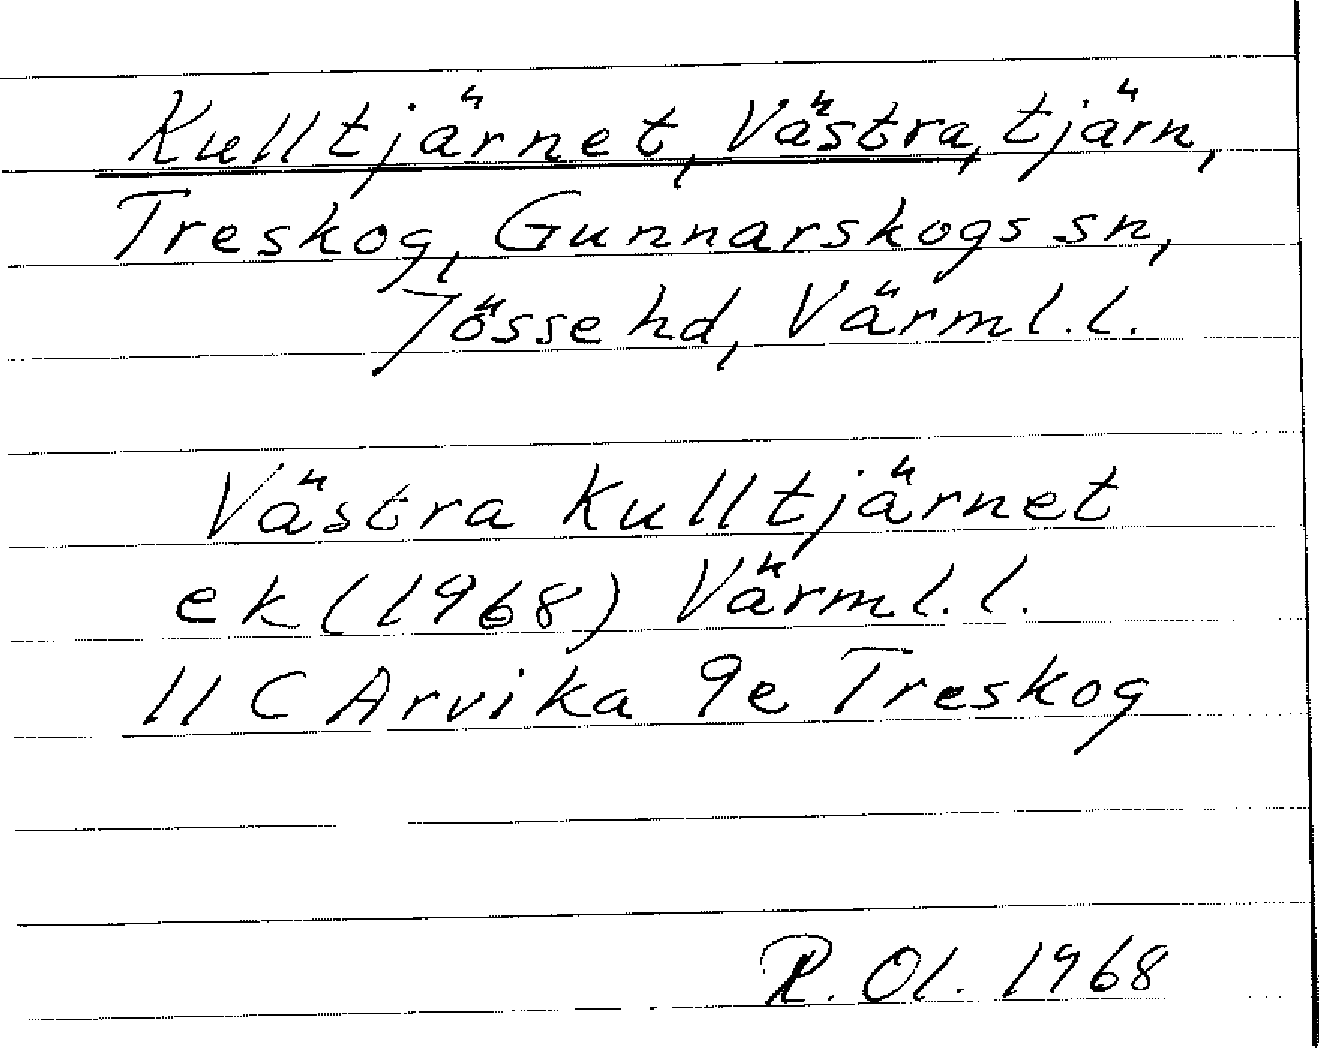 Kulltjärnet, Västra, tjärn,
Treskog, Gunnarskogs sn,
Jösse hd, Värml.l.
Västra Kulltjärnet
ek (1968) Värml.l.
11 C Arvika 9e Treskog
R. Ol. 1968